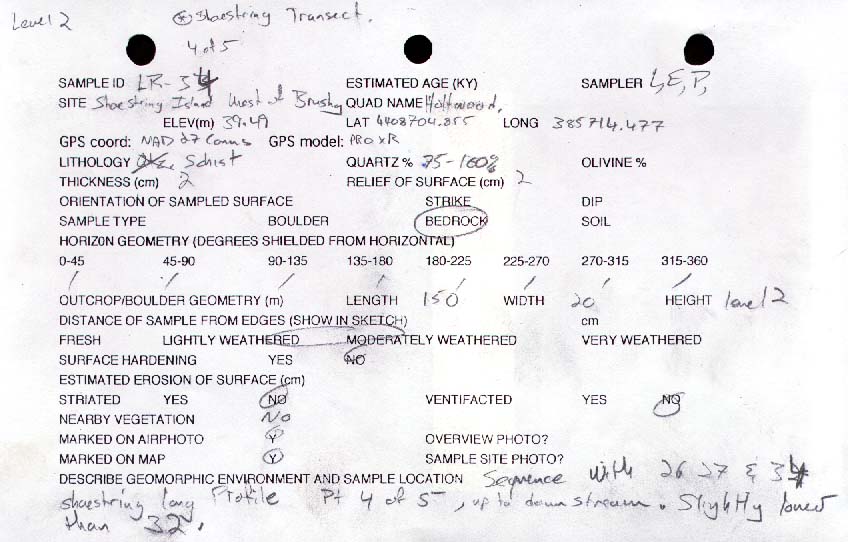 Level 2
* Shoestring Transect.
4 of 5
SAMPLE ID LR-34 ESTIMATED AGE (KY) SAMPLER L, E, P,
SITE Shoestring Island West of Brushy QUAD NAME Holtwood,
ELEV(m) 39.49 LAT 4408704.855 LONG 385714.477
GPS coord: NAD 27 Conus GPS model: PRO XR
LITHOLOGY Schist QUARTZ % 75-100% OLIVINE %
THICKNESS (cm) 2 RELIEF OF SURFACE (cm) 2
ORIENTATION OF SAMPLED SURFACE STRIKE DIP
SAMPLE TYPE BOULDER BEDROCK SOIL
HORIZON GEOMETRY (DEGREES SHIELDED FROM HORIZONTAL)
0-45 45-90 90-135 135-180 180-225 225-270 270-315 315-360
/ / / / / / / /
OUTCROP/BOULDER GEOMETRY (m) LENGTH 150 WIDTH 20 HEIGHT level 2
DISTANCE OF SAMPLE FROM EDGES (SHOW IN SKETCH) cm
FRESH LIGHTLY WEATHERED MODERATELY WEATHERED VERY WEATHERED
SURFACE HARDENING YES NO
ESTIMATED EROSION OF SURFACE (cm)
STRIATED YES NO VENTIFACTED YES NO
NEARBY VEGETATION No
MARKED ON AIRPHOTO Y OVERVIEW PHOTO?
MARKED ON MAP Y SAMPLE SITE PHOTO?
DESCRIBE GEOMORPHIC ENVIRONMENT AND SAMPLE LOCATION Sequence with 26 27 & 34
shoestring long Profile Pt 4 of 5, up to down stream. Slightly lower
than 32.